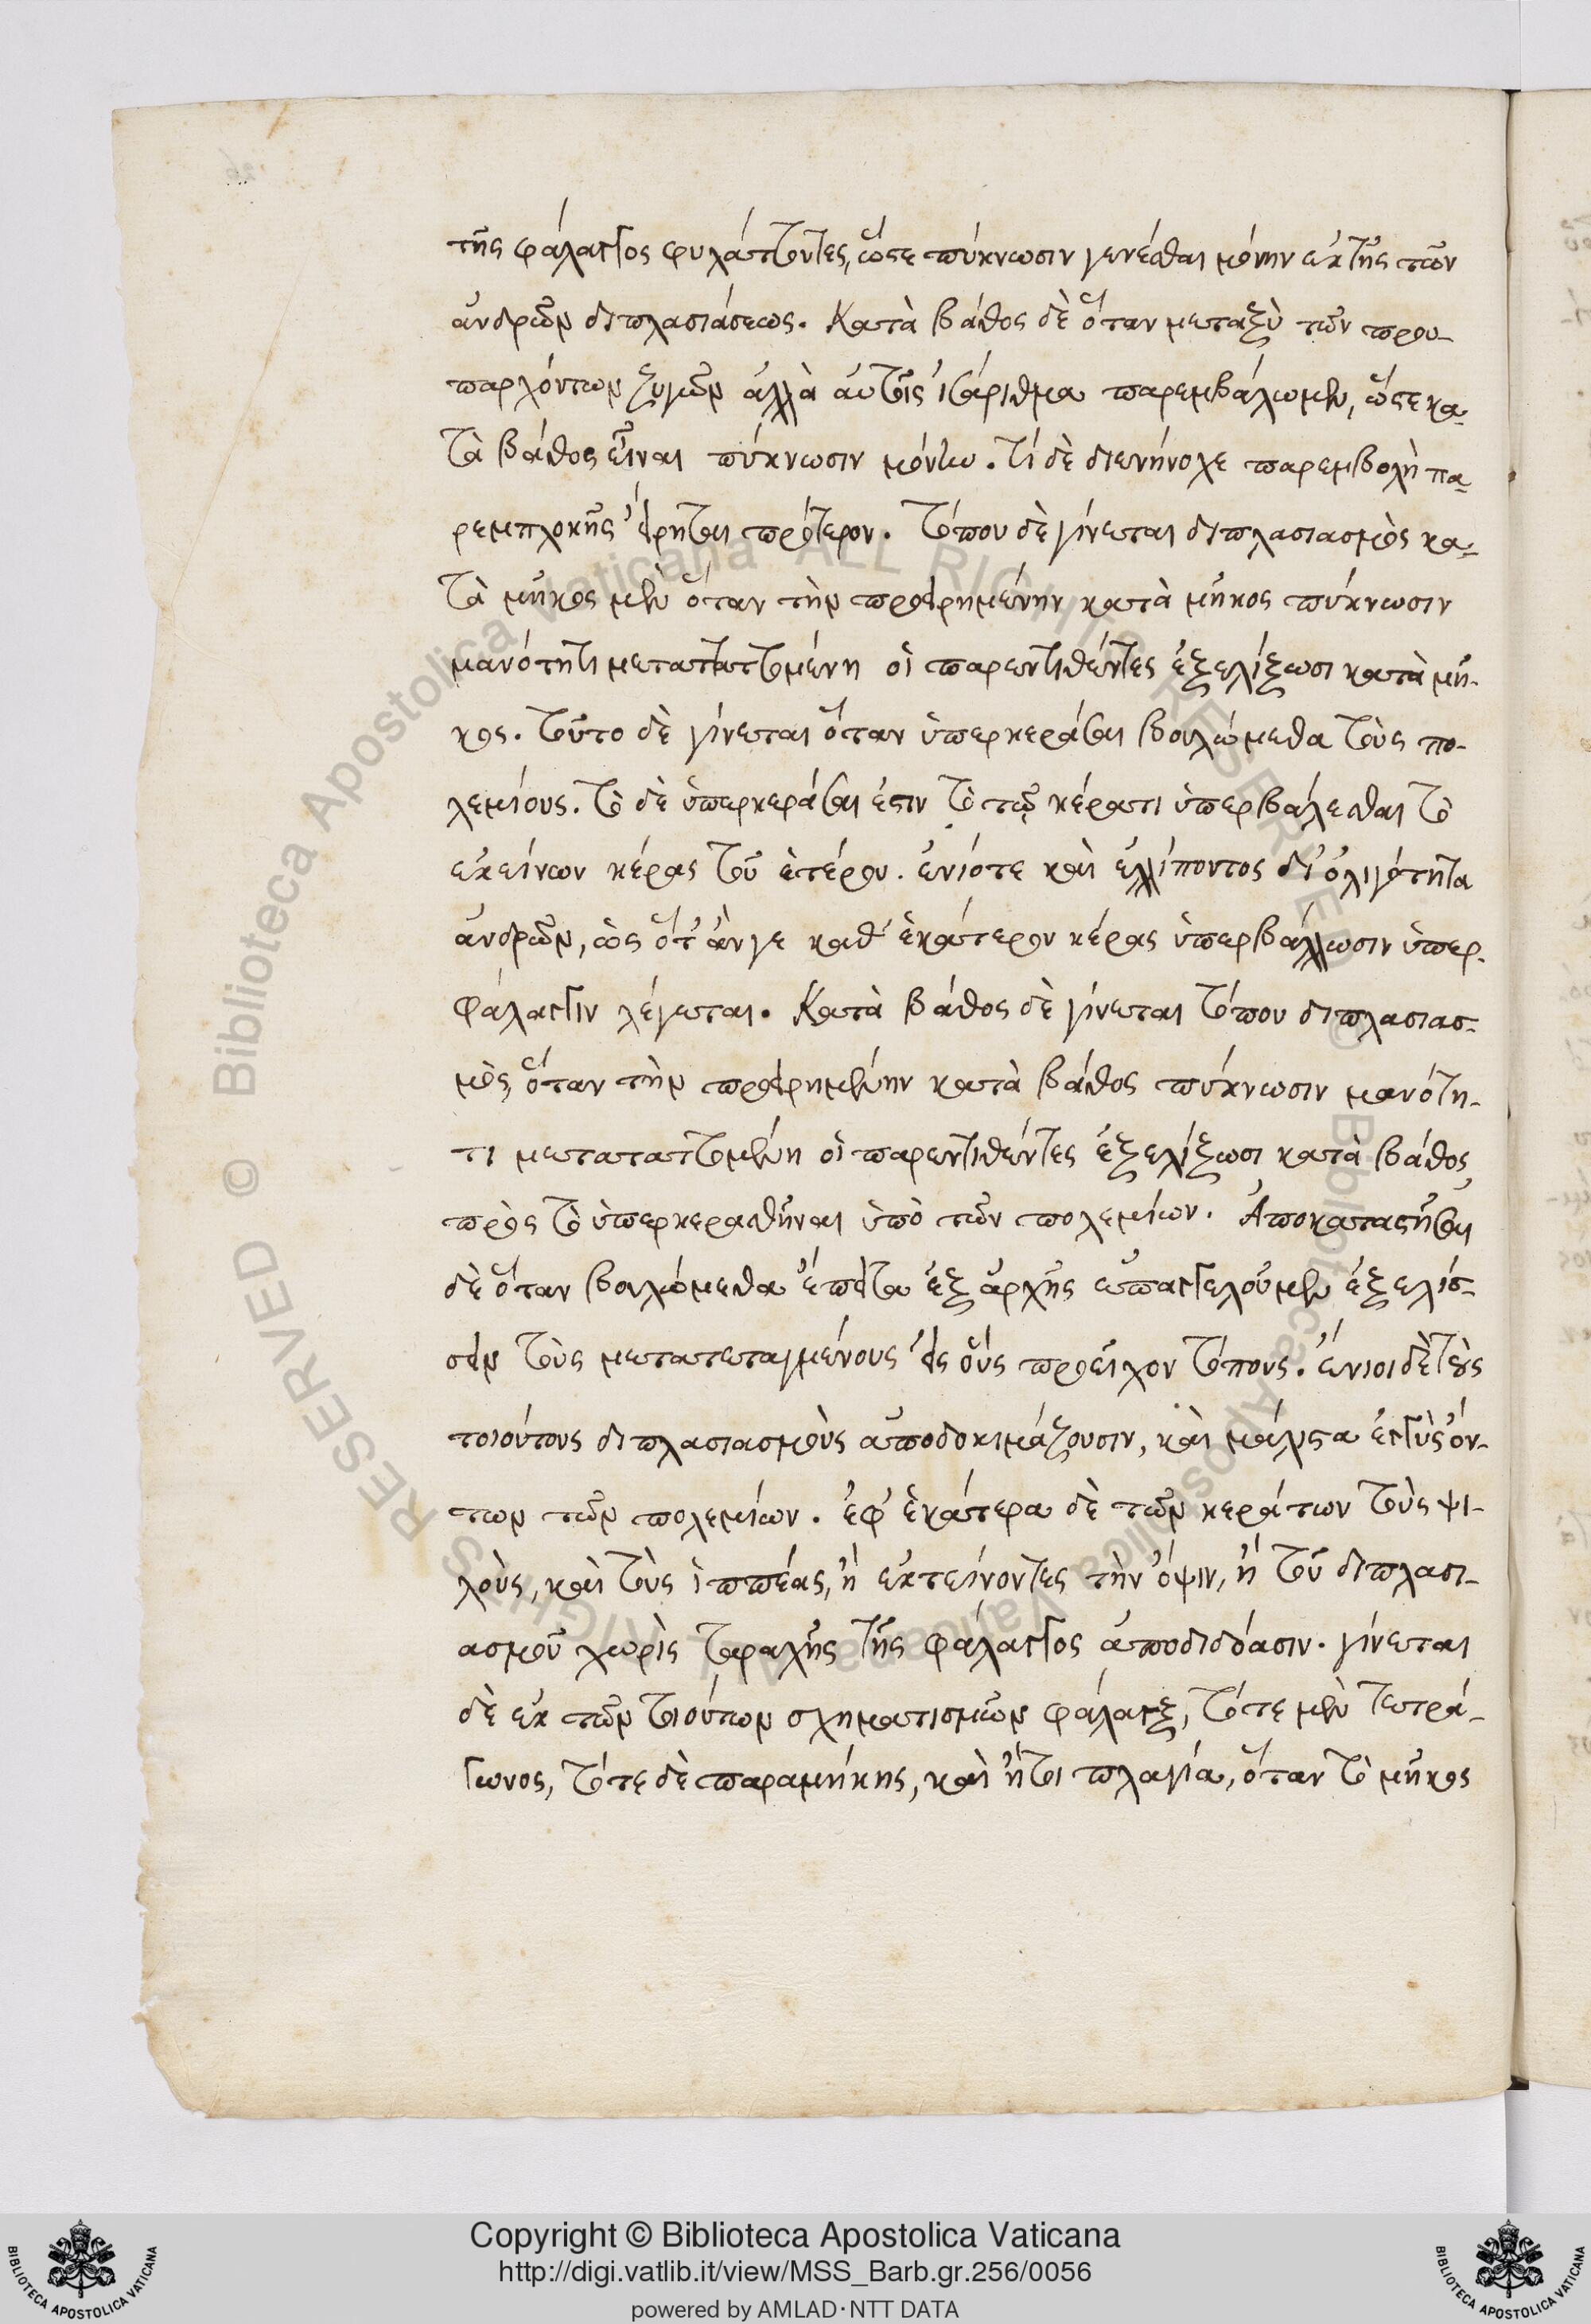 τῆς φάλαγγος φυλάττοντες, ὥστε πύκνωσιν γενέσθαι μόνην ἐκ τῆς τῶν
ἀνδρῶν διπλασιάσεως. Κατὰ βάθος δὲ ὅταν μεταξὺ τῶν προϋ-
παρχόντων ζυγῶν ἀλλὰ αὐτοῖς ἰσάριθμα παρεμβάλωμεν, ὥστε κα-
τὰ βάθος εἶναι πύκνωσιν μόνην. τί δὲ διενήνοχε παρεμβολὴ πα-
ρεμπλοκῆς εἴρηται πρότερον. τόπου δὲ γίνεται διπλασιασμὸς κα-
τὰ μῆκος μὲν ὅταν τὴν προειρημένην κατὰ μῆκος πύκνωσιν
μανότητι μεταταττομένη οἱ παρεντιθέντες ἐξελίξωσι κατὰ μῆ-
κος. τοῦτο δὲ γίνεται ὅταν ὑπερκεράσαι βουλώμεθα τοὺς πο-
λεμίους. τὸ δὲ ὑπερκεράσαι ἐστιν τὸ τῷ κέρατι ὑπερβάλεσθαι τὸ
ἐκείνων κέρας τοῦ ἑτέρου. ἐνίοτε καὶ ἐλλίποντος δι' ὀλιγότητα
ἀνδρῶν, ὡς ὅτ' ἄν γε καθ' ἑκάτερον κέρας ὑπερβάλλωσιν ὑπερ-
φάλαγγιν λέγεται. Κατὰ βάθος δὲ γίνεται τόπου διπλασιασ-
μὸς, ὅταν τὴν προειρημένην κατὰ βάθος πύκνωσιν μανότη-
τι μεταταττομένη οἱ παρεντιθέντες ἐξελίξωσι κατὰ βάθος,
πρὸς τὸ ὑπερκερασθῆναι ὑπὸ τῶν πολεμίων. Ἀποκαταστῆσαι
δὲ ὅταν βουλώμεθα ἔπειτα ἐξ ἀρχῆς ἐπαγγελοῦμεν ἐξελίσ-
σειν τοὺς μετατεταγμένους εἰς οὓς προεῖχον τόπους. ἔνιοι δὲ τοὺς
τοιούτους διπλασιασμοὺς ἀποδοκιμάζουσιν, καὶ μάλιστα ἐγγὺς ὄν-
των τῶν πολεμίων. ἐφ' ἑκάτερα δὲ τῶν κεράτων τοὺς ψι-
λοὺς, καὶ τοὺς ἱππέας, ἢ ἐκτείνοντες τὴν ὄψιν, ἢ τοῦ διπλασι-
ασμοῦ χωρὶς ταραχῆς τῆς φάλαγγος ἀποδιδόασιν. γίνεται
δὲ ἐκ τῶν τοιούτων σχηματισμῶν φάλαγξ, τότε μὲν τετρά-
γωνος, τότε δὲ παραμήκης, καὶ ἤτοι πλαγία, ὅταν τὸ μῆκος
Copyright © Biblioteca Apostolica Vaticana
http://digi.vatlib.it/view/MSS_Barb.gr.256/0056
powered by AMLAD·NTT DATA